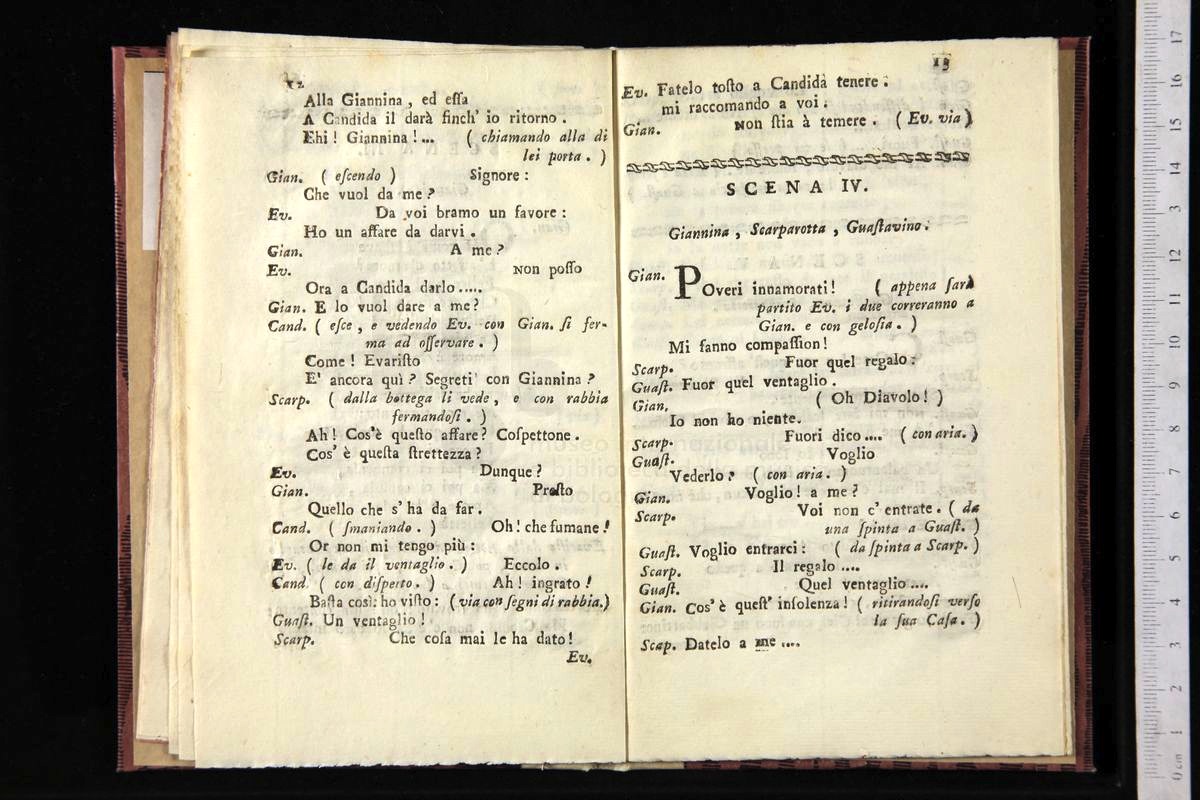 12
Alla Giannina, ed eſſa
A Candida il darà finch' io ritorno.
Ehi! Giannina!... (chiamando alla di
lei porta.)
Gian. (eſcendo) Signore:
Che vuol da me?
Ev. Da voi bramo un favore:
Ho un affare da darvi.
Gian. A me?
Ev. Non poſſo
Ora a Candida darlo.....
Gian. E lo vuol dare a me?
Cand. (eſce, e vedendo Ev. con Gian. ſi fer-
ma ad oſſervare.)
Come! Evariſto
E' ancora quì? Segreti con Giannina?
Scarp. (dalla bottega li vede, e con rabbia
fermandoſi.)
Ah! Cos'è queſto affare? Coſpettone.
Cos' è queſta ſtrettezza?
Ev. Dunque?
Gian. Preſto
Quello che s' ha da far.
Cand. (ſmaniando.) Oh! che fumane!
Or non mi tengo più:
Ev. (le da il ventaglio.) Eccolo.
Cand. (con diſpetto.) Ah! ingrato!
Baſta così: ho viſto: (via con ſegni di rabbia.)
Guaſt. Un ventaglio!
Scarp. Che coſa mai le ha dato!
Ev.
13
Ev. Fatelo toſto a Candida tenere:
mi raccomando a voi.
Gian. Non ſtia à temere. (Ev. via)
SCENA IV.
Giannina, Scarparotta, Guaſtavino.
Gian. POveri innamorati! (appena ſarà
partito Ev. i due correranno a
Gian. e con geloſia.)
Mi fanno compaſſion!
Scarp. Fuor quel regalo:
Guaſt. Fuor quel ventaglio.
Gian. (Oh Diavolo!)
Io non ho niente.
Scarp. Fuori dico.... (con aria.)
Guaſt. Voglio
Vederlo? (con aria.)
Gian. Voglio! a me?
Scarp. Voi non c' entrate. (da
una ſpinta a Guaſt.)
Guaſt. Voglio entrarci: (da ſpinta a Scarp.)
Scarp. Il regalo....
Guaſt. Quel ventaglio....
Gian. Cos' è queſt' inſolenza! (ritirandoſi verſo
la ſua Caſa.)
Scap. Datelo a me....